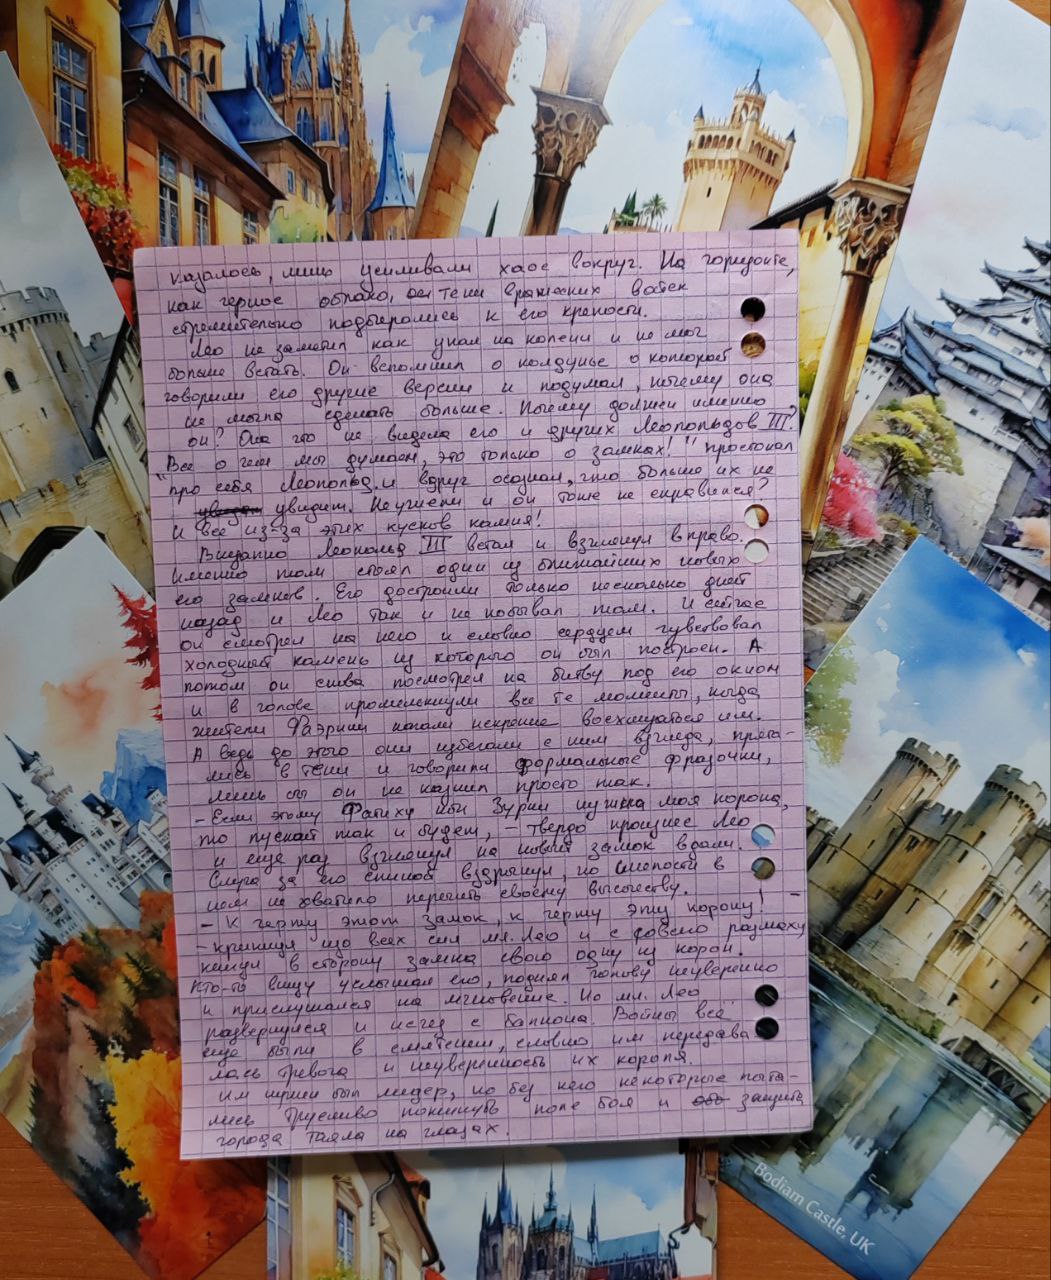 казалось, лишь усиливали хаос вокруг. На горизонте,
как черное облако, тени вражеских войск
стремительно подбирались к его крепости.
Лео не заметил как упал на колени и не мог
больше встать. Он вспомнил о колдунье о которой
говорили его другие версии и подумал, почему она
не могла сделать больше. Почему должен именно
он? Она что не видела его и других Леопольдов III?
"Все о чем мы думаем, это только о замках!" простонал
про себя Леопольд и вдруг осознал, что больше их не
увидит. Неужели и он тоже не справился?
И все из-за этих кусков камня!
Внезапно Леопольд III встал и взглянул вправо.
Именно там стоял один из ближайших новых
его замков. Его достроили только несколько дней
назад и Лео так и не побывал там. И сейчас
он смотрел на него и словно сердцем чувствовал
холодный камень из которого он был построен. А
потом он снова посмотрел на битву под его окном
и в голове промелькнули все те моменты, когда
жители Фаэрии начали искренне восхищаться им.
А ведь до этого они избегали с ним взгляда, прята-
лись в тени и говорили формальные фразочки,
лишь бы он не казнил просто так.
- Если этому Фатиху ибн Зурии нужна моя корона,
то пускай так и будет, - твердо произнес Лео
и еще раз взглянул на новый замок вдали.
Слуга за его спиной вздрогнул, но смелости в
нем не хватило перечить своему высочеству.
- К черту этот замок, к черту эту корону! -
- крикнул изо всех сил мл. Лео и с размаху
кинул в сторону замка свою одну из корон.
Кто-то внизу услышал его, поднял голову неуверенно
и прислушался на мгновение. Но мл. Лео
развернулся и исчез с балкона. Войны все
еще были в смятении, словно им передава
лась тревога и неуверенность их короля.
Им нужен был лидер, но без него некоторые пыта-
лись трусливо покинуть поле боя и защита
города таяла на глазах.
Bodiam Castle, UK